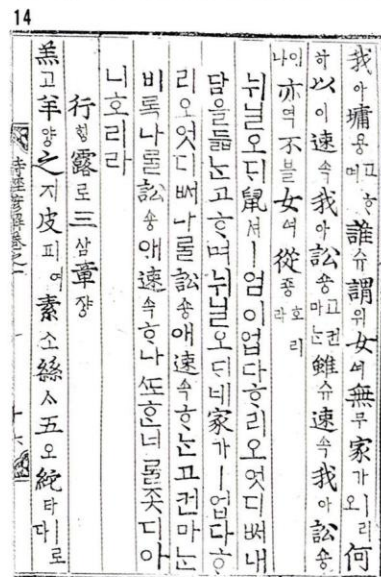 14
我아墉용고ᄒᆞ며誰슈謂위女여無무家가ㅣ리오何
하以이速속我아訟숑고마ᄂᆞᆫ건雖슈速속我아訟숑
이나亦역不블女여從죵호리라
뉘닐오ᄃᆡ鼠셔ㅣ엄이업다ᄒᆞ리오엇디ᄡᅥ내
담을듧ᄂᆞᆫ고ᄒᆞ며뉘닐오ᄃᆡ네家가ㅣ업다ᄒᆞ
리오엇디ᄡᅥ나ᄅᆞᆯ訟숑애速속ᄒᆞᄂᆞᆫ고컨마ᄂᆞᆫ
비록나ᄅᆞᆯ訟숑애速속ᄒᆞ나ᄯᅩᄒᆞᆫ너ᄅᆞᆯ좃디아
니호리라
行ᄒᆡᆼ露로三삼章쟝
羔고羊양之지皮피여素소絲ᄉᆞ五오紽타ㅣ로다
詩經諺解卷之一